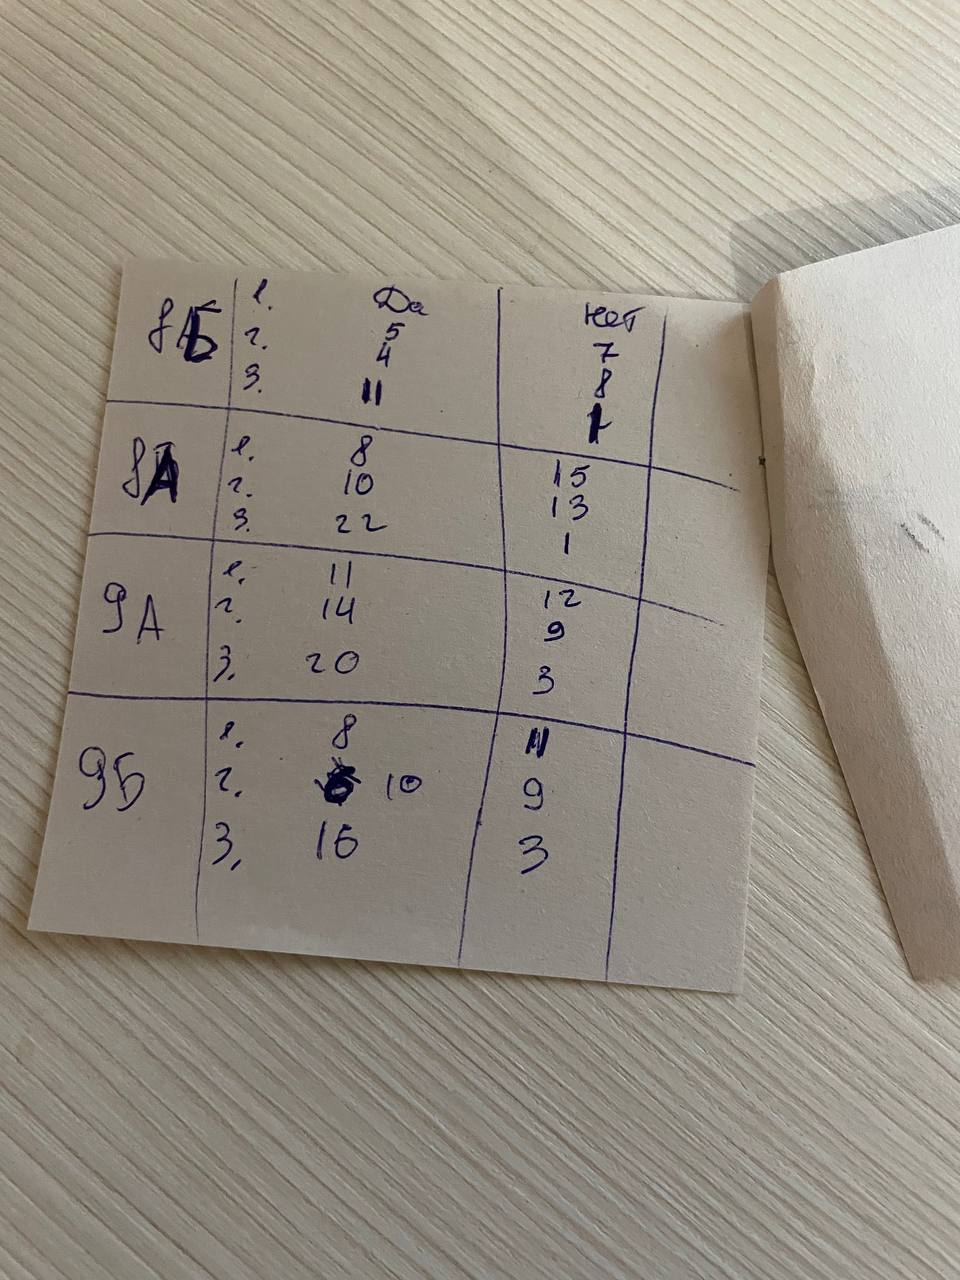 8Б 1. Да Нет
2. 5 7
3. 4 8
11 1
8А 1. 8 15
2. 10 13
3. 22 1
9А 1. 11 12
2. 14 9
3. 20 3
9Б 1. 8 11
2. 10 9
3. 16 3